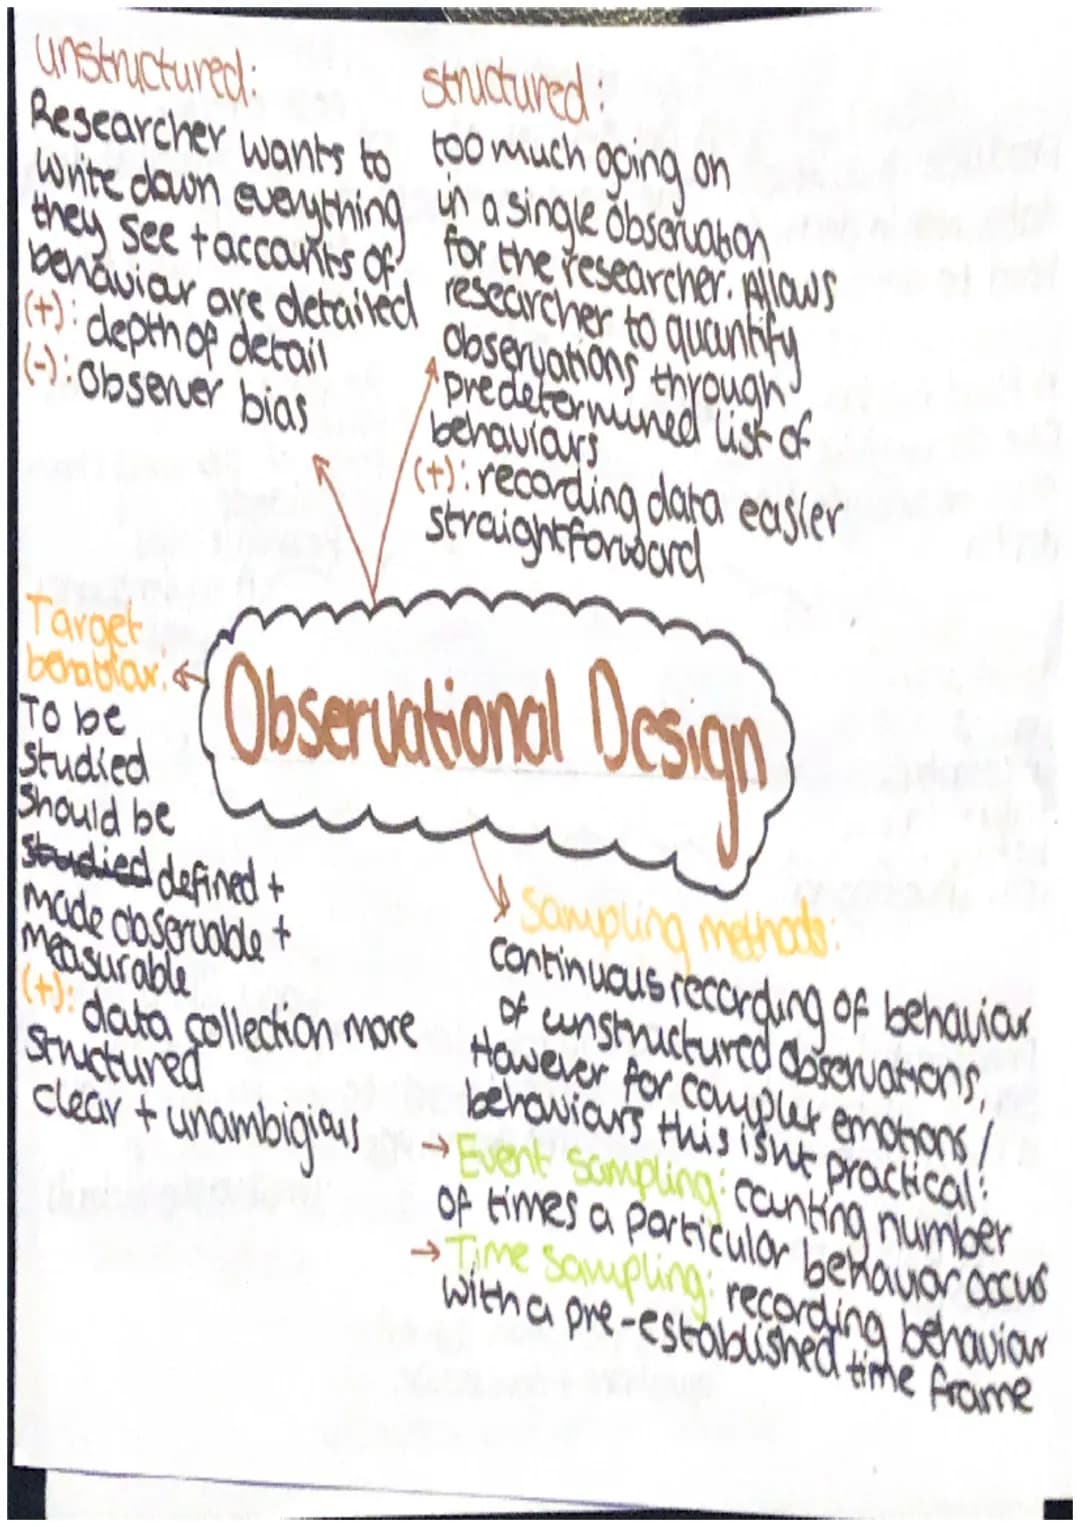 unstructured:
Researcher wants to
write down everything
they see + accounts of
behaviour are detailed
(+): depth of detail
(-): observer bias
structured:
too much going on
in a single observation
for the researcher. Allows
researcher to quantify
observations through
predetermined list of
behaviours
(+): recording data easier
straightforward
Observational Design
Target
behaviour:
To be
studied
should be
studied defined +
made observable +
measurable
(+): data collection more
structured
clear + unambigious
Sampling methods:
continuous recording of behaviour
of unstructured observations
However for complex emotions /
behaviours this isnt practical:
→ Event sampling: counting number
of times a particular behaviour occus
→ Time sampling: recording behaviour
with a pre-established time frame